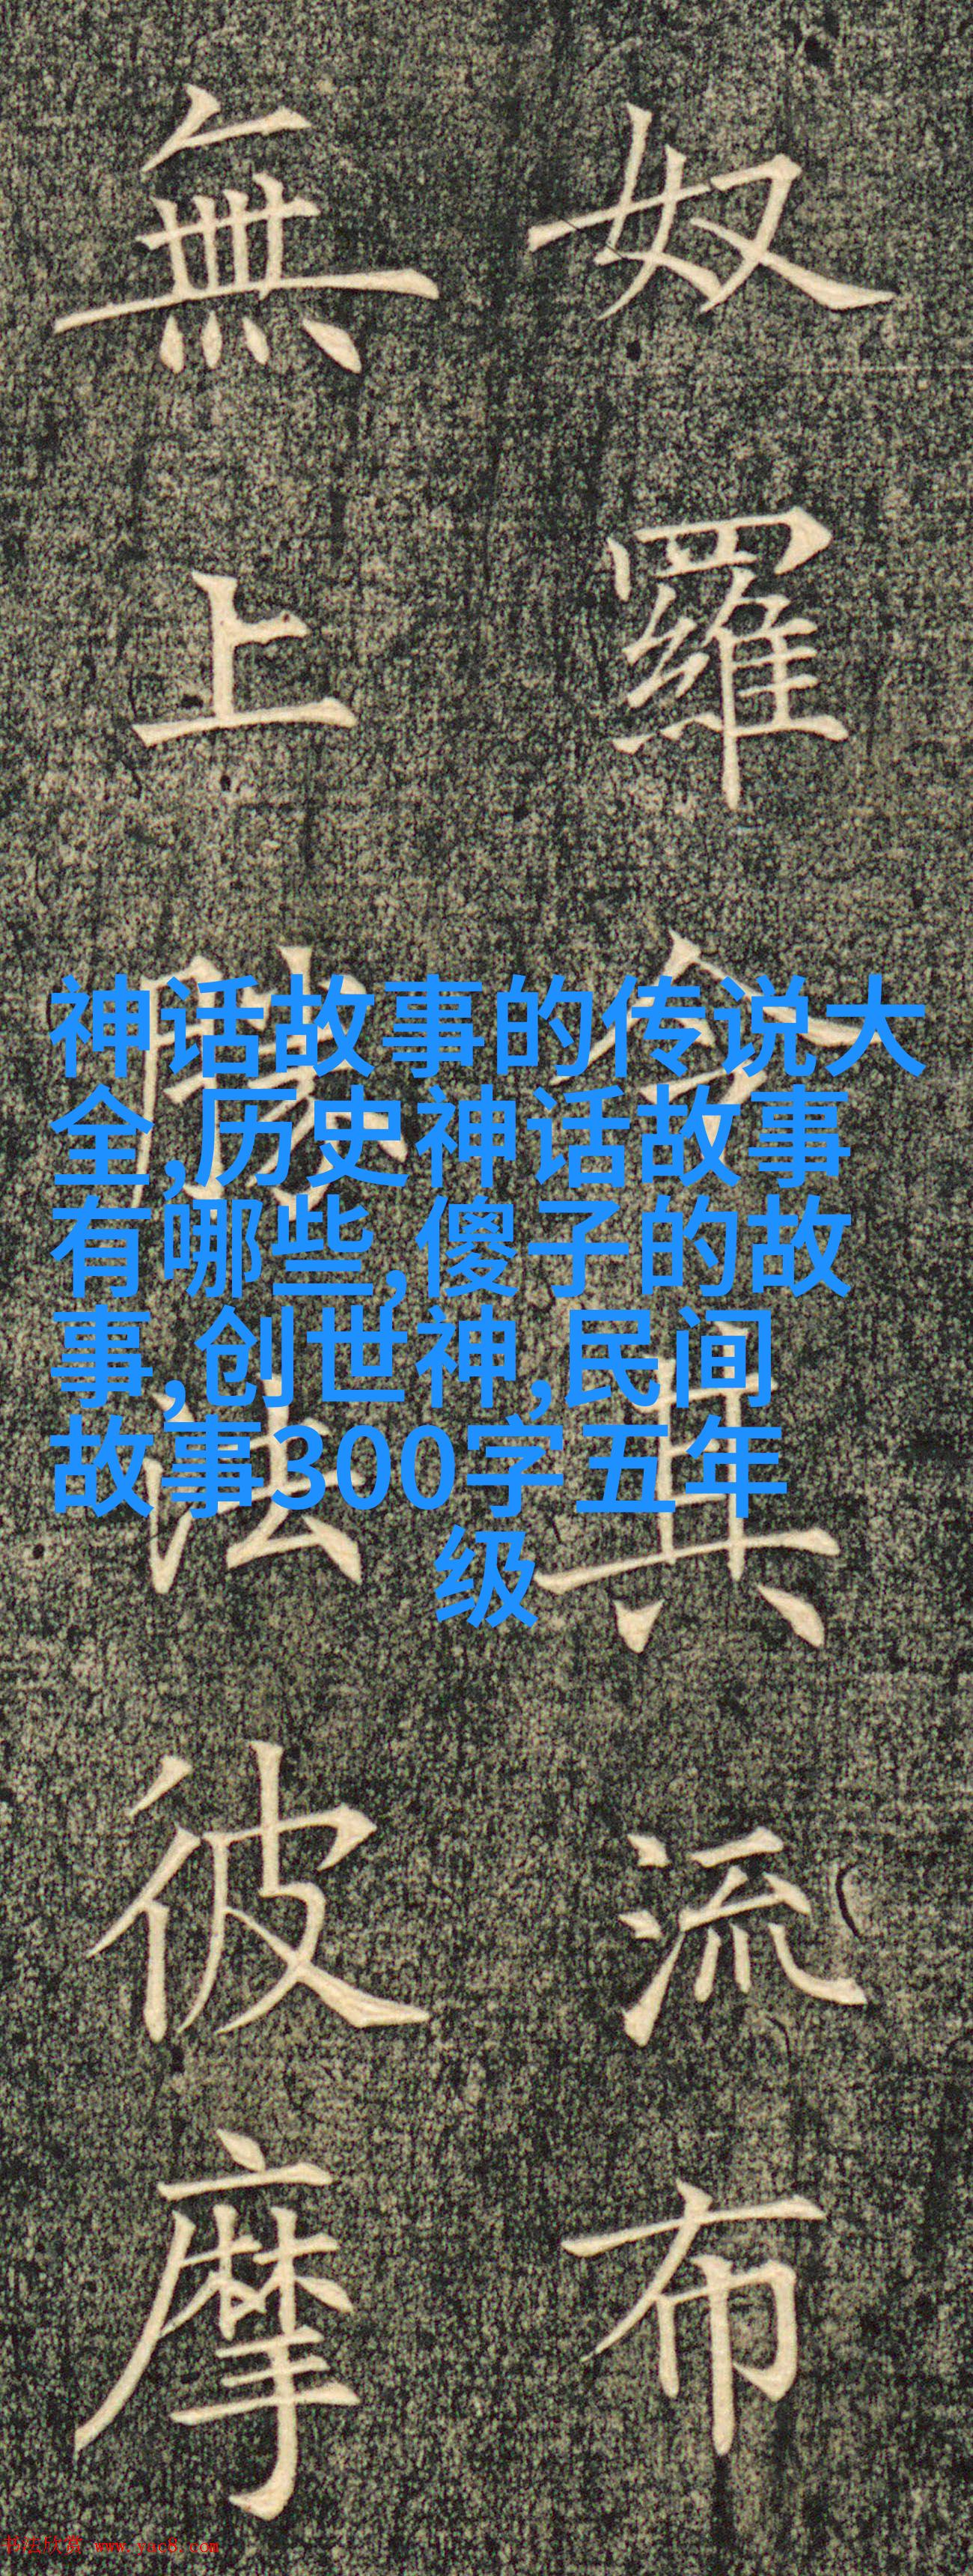 奴羅令其流布
無上勝法彼摩
神话故事的传说大
全,历史神话故事
有哪些,傻子的故
事,创世神,民间
故事300字五年
级
书法欣赏 www.yac8.com